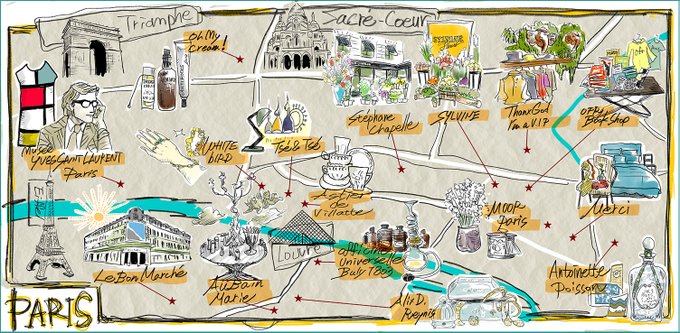 Triomphe
Sacré-Coeur
Oh My
Cream!
SYLVAINE
Fleur
Musée
YVES SAINT LAURENT
Paris
WHITE
BIRD
Tsé & Tsé
Stéphane
Chapelle
SYLVINE
Thanx God
I'm a V.I.P
OFR.
Book Shop
Astier
de
Villatte
MOOR
Paris
Merci
Le Bon Marché
Au Bain
Marie
Louvre
Officine
Universelle
Buly 1803
Alix D.
Reynis
Antoinette
Poisson
PARIS